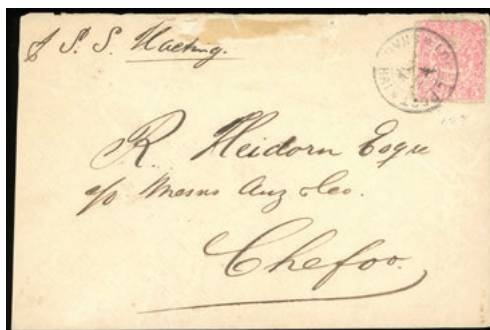 S. S. Haeting.
R. Heidorn Esqre
c/o Messrs Anz & Co.
Chefoo.
LOCAL POST